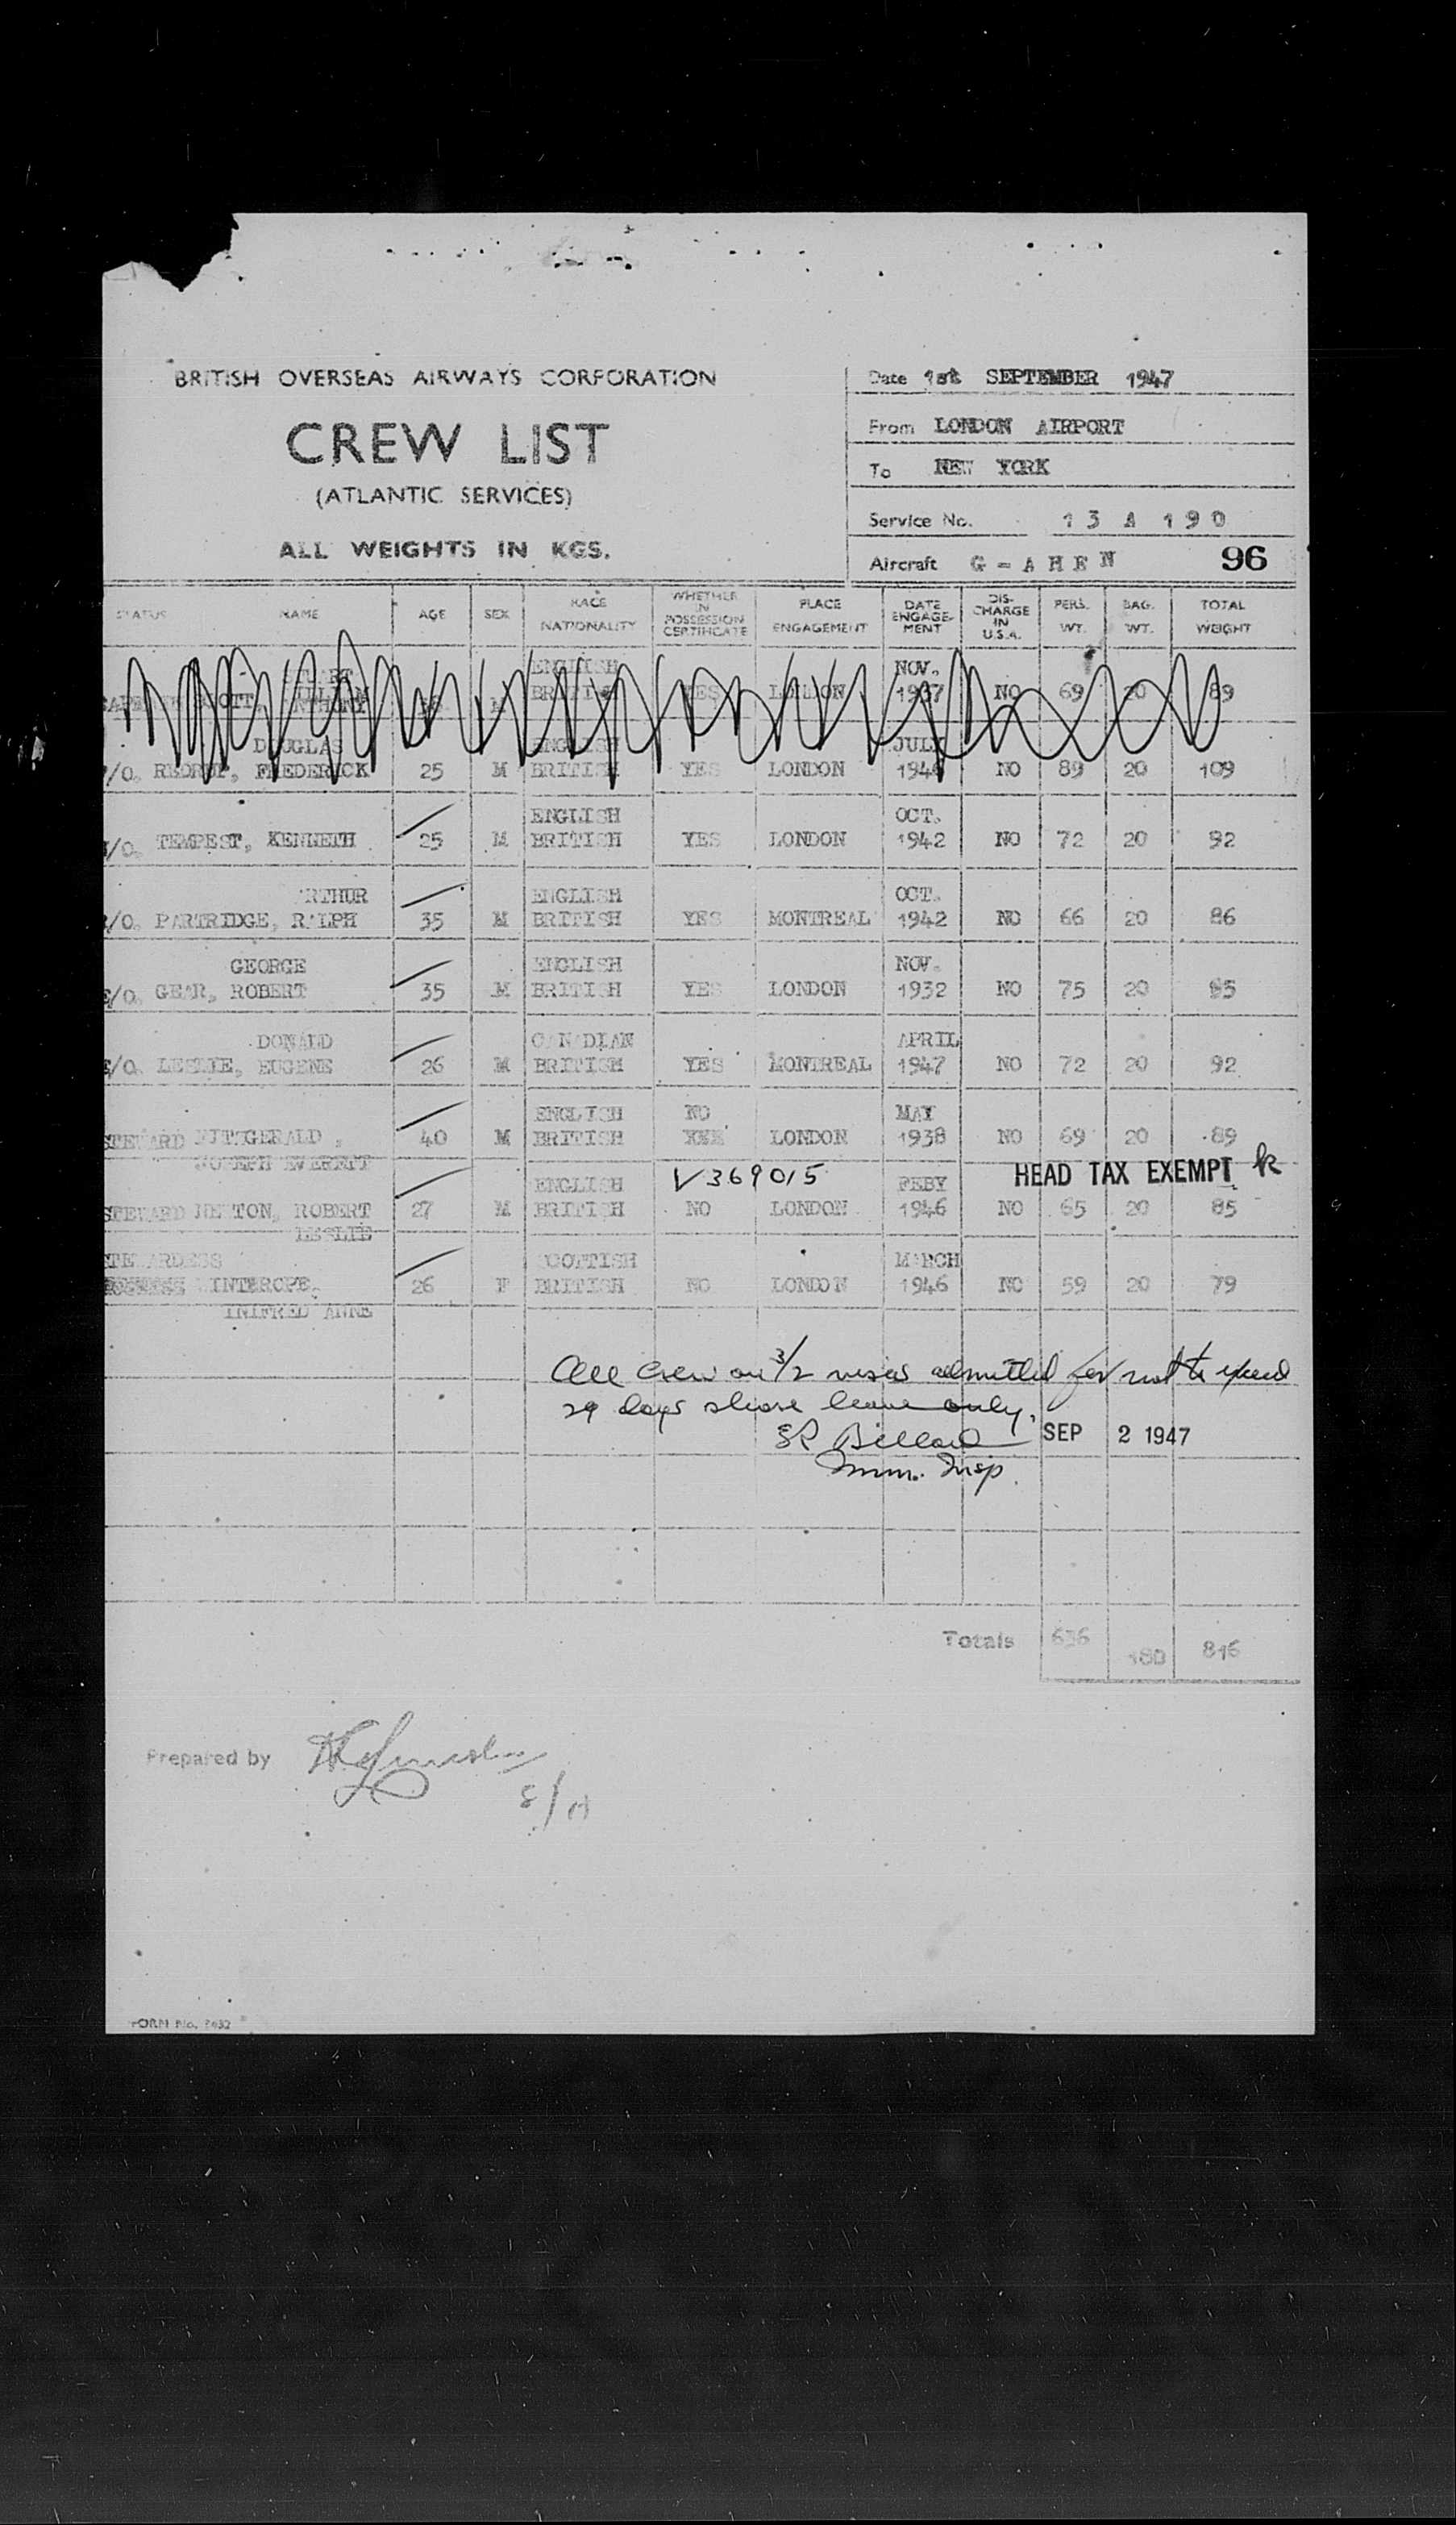 BRITISH OVERSEAS AIRWAYS CORPORATION
CREW LIST
(ATLANTIC SERVICES)
ALL WEIGHTS IN KGS.
Date 1st SEPTEMBER 1947
From LONDON AIRPORT
To NEW YORK
Service No. 13 A 190
Aircraft G-AHEN 96
STATUS NAME AGE SEX RACE NATIONALITY WHETHER IN POSSESSION CERTIFICATE PLACE ENGAGEMENT DATE ENGAGE-MENT DIS-CHARGE IN U.S.A. PERS. WT. BAG. WT. TOTAL WEIGHT
ENGLISH NOV.
BRITISH YES LONDON 1937 NO 69 20 89
DOUGLAS ENGLISH JULY
/O. REDRUP, FREDERICK 25 M BRITISH YES LONDON 1946 NO 89 20 109
ENGLISH OCT.
/O. TEMPEST, KENNETH 25 M BRITISH YES LONDON 1942 NO 72 20 92
RTHUR ENGLISH OCT.
/O. PARTRIDGE, RALPH 35 M BRITISH YES MONTREAL 1942 NO 66 20 86
GEORGE ENGLISH NOV.
/O. GEAR, ROBERT 35 M BRITISH YES LONDON 1932 NO 75 20 95
DONALD CANADIAN APRIL
/O. LESLIE, EUGENE 26 M BRITISH YES MONTREAL 1947 NO 72 20 92
ENGLISH NO MAY
STEWARD FITZGERALD, 40 M BRITISH XXX LONDON 1938 NO 69 20 89
JOSEPH EVERETT
V369015 HEAD TAX EXEMPT k
ENGLISH FEBY
STEWARD NEWTON, ROBERT 27 M BRITISH NO LONDON 1946 NO 65 20 85
LESLIE
TE ARDESS SCOTTISH MARCH
INTEROPE, 26 F BRITISH NO LONDON 1946 NO 59 20 79
INIFRED ANNE
All Crew on 3/2 visas admitted for not to exceed
29 days shore leave only.
SEP 2 1947
Imm. Insp.
Totals 636 180 816
Prepared by
FORM No.